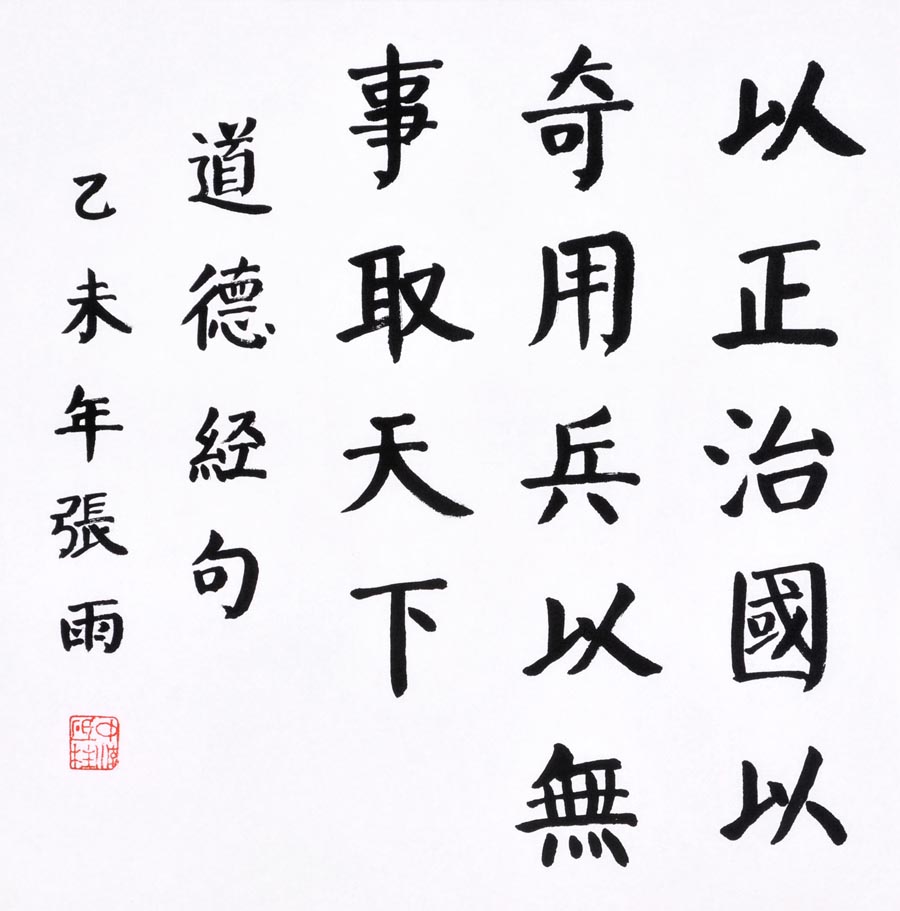 以正治國以
奇用兵以無
事取天下
道德経句
乙未年張雨